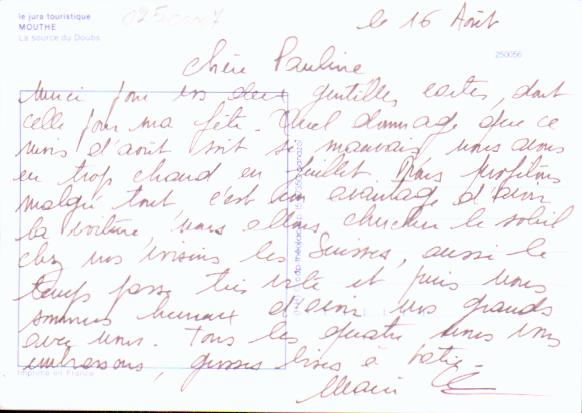 le jura touristique
MOUTHE
La source du Doubs
le 16 Août
250056
Chère Pauline
Merci pour tes deux gentilles cartes, dont
celle pour ma fête. Quel dommage que ce
mois d'août soit si mauvais, nous avons
eu trop chaud en Juillet. Nous profitons
malgré tout, c'est un avantage d'avoir
la voiture, nous allons chercher le soleil
chez nos voisins les Suisses, aussi le
temps passe très vite et puis nous
sommes heureux d'avoir nos grands
avec nous. Tous les quatre nous vous
embrassons, grosses bises à
Imprimé en France